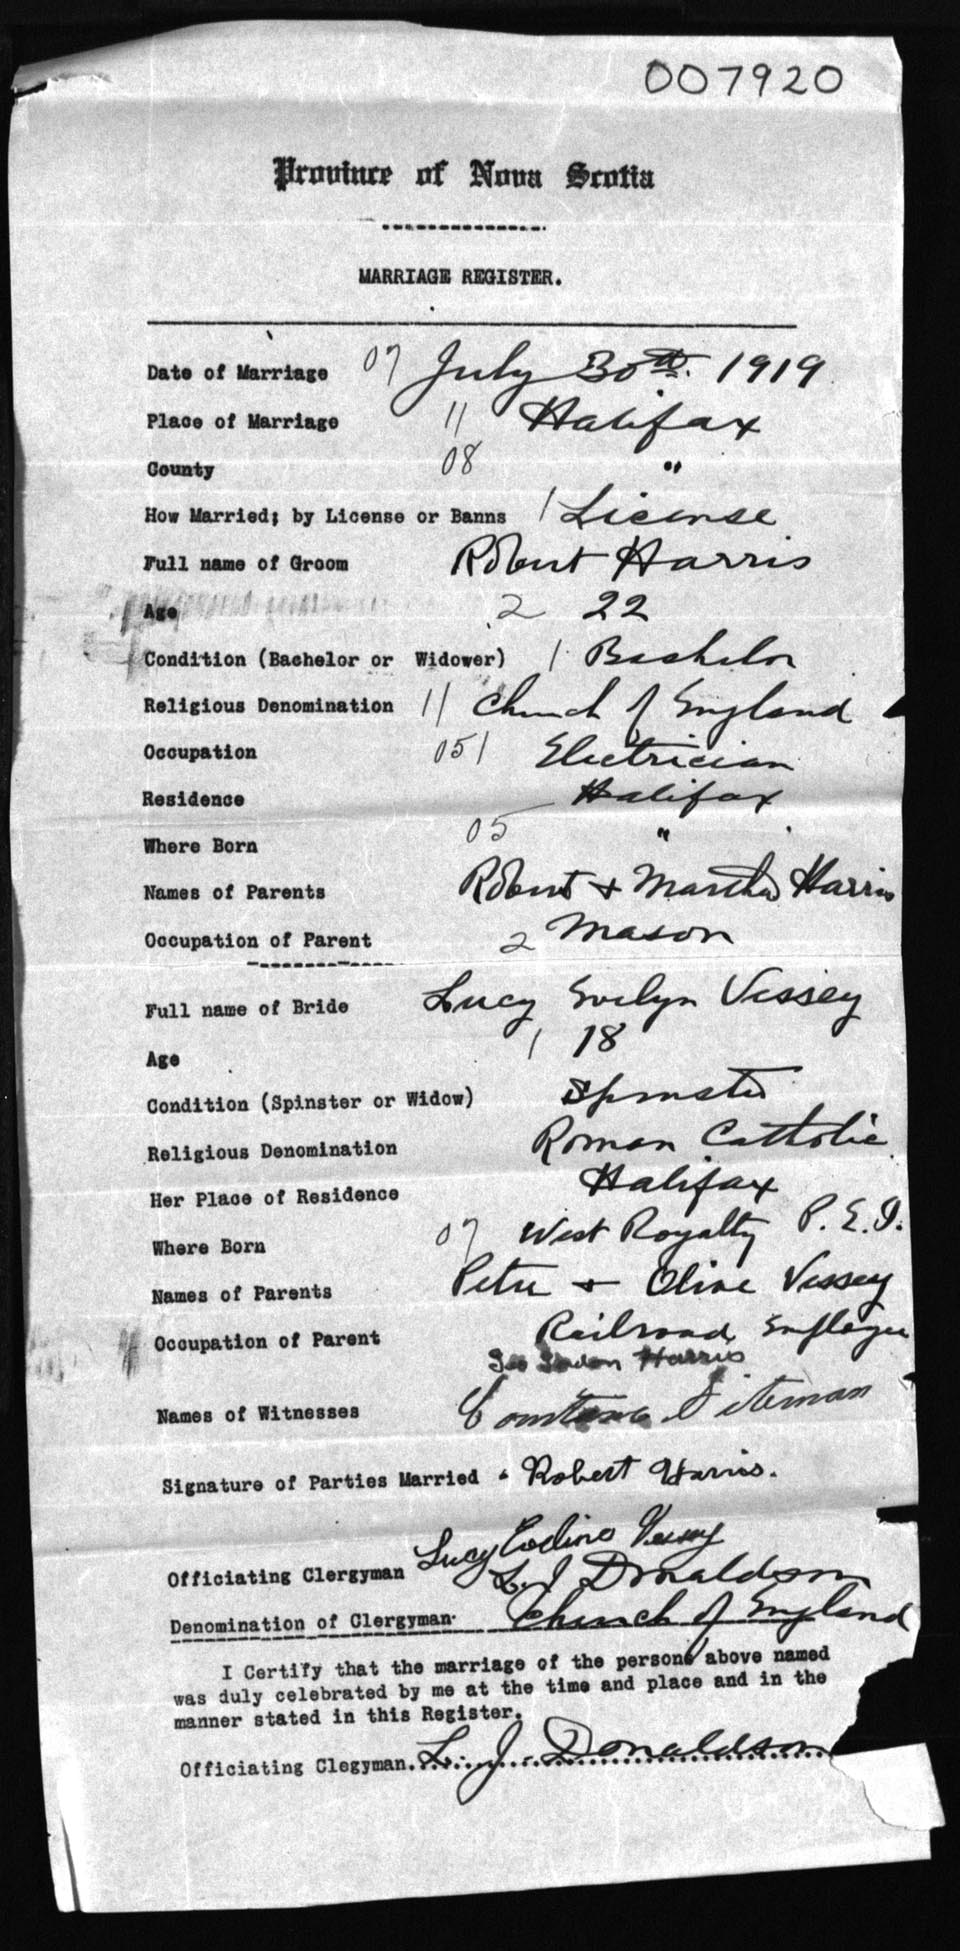 007920
Province of Nova Scotia
MARRIAGE REGISTER.
Date of Marriage 07 July 30th. 1919
Place of Marriage 11 Halifax
County 08 "
How Married; by License or Banns 1 License
Full name of Groom Robert Harris
Age 2 22
Condition (Bachelor or Widower) 1 Bachelor
Religious Denomination 11 Church of England
Occupation 051 Electrician
Residence Halifax
Where Born 05 "
Names of Parents Robert + Martha Harris
Occupation of Parent 2 Mason
Full name of Bride Lucy Evelyn Vessey
Age 1 18
Condition (Spinster or Widow) Spinster
Religious Denomination Roman Catholic
Her Place of Residence Halifax
Where Born 07 West Royalty P.E.I.
Names of Parents Peter + Olive Vessey
Occupation of Parent Railroad Employee
Harris
Names of Witnesses
Signature of Parties Married Robert Harris.
Lucy Vessey
Officiating Clergyman L. J Donaldson
Denomination of Clergyman Church of England
I Certify that the marriage of the persons above named
was duly celebrated by me at the time and place and in the
manner stated in this Register.
Officiating Clegyman. L. J. Donaldson